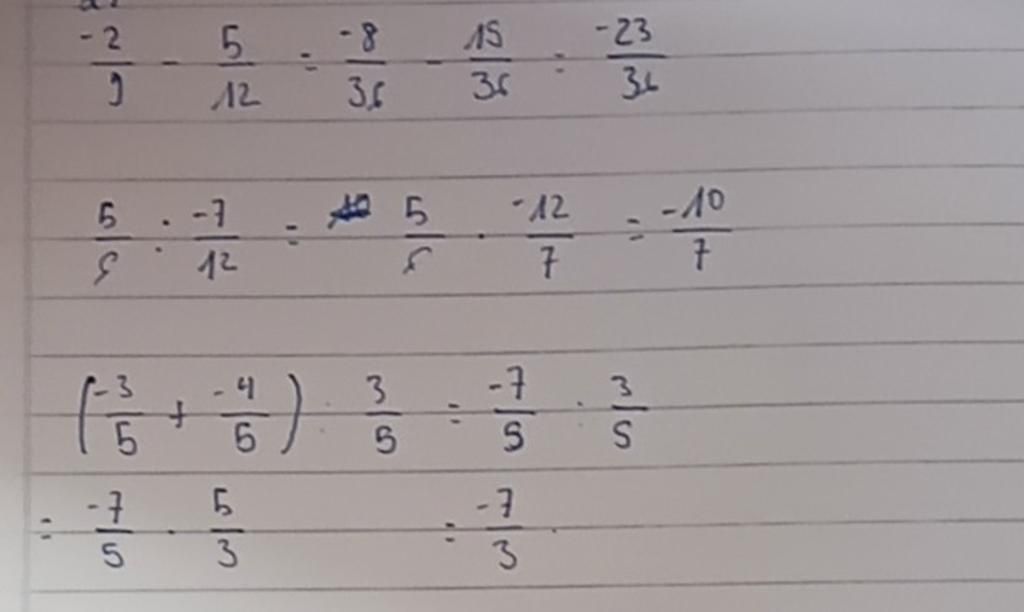 -2/9 - 5/12 = -8/36 - 15/36 = -23/36
5/6 : -7/12 = 5/6 · -12/7 = -10/7
(-3/5 + -4/5) : 3/5 = -7/5 : 3/5
= -7/5 · 5/3 = -7/3